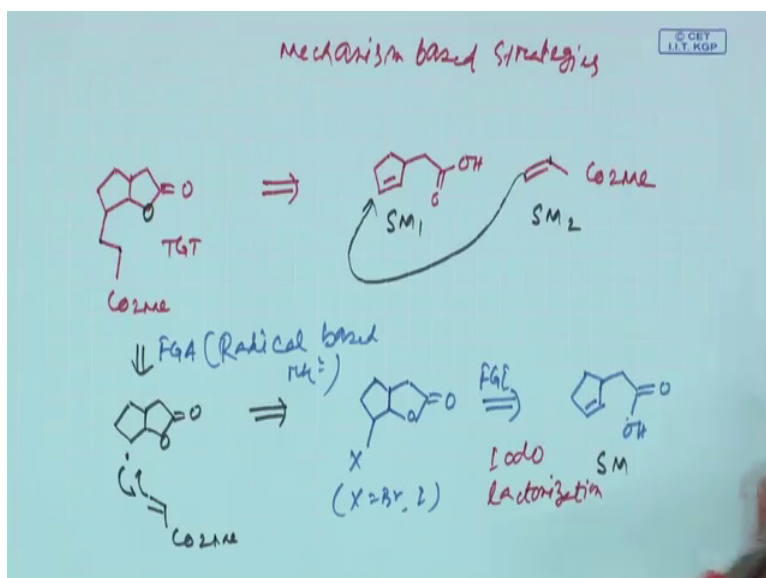 Mechanism based Strategies
© CET
I.I.T. KGP
O
O
TGT
CO2Me
⇒
OH
O
SM1
CO2Me
SM2
⇓ FGA (Radical based
rxn)
O
O
CO2Me
⇒
O
O
X
(X = Br, I)
FGI
⇒
Iodo
lactonization
O
OH
SM